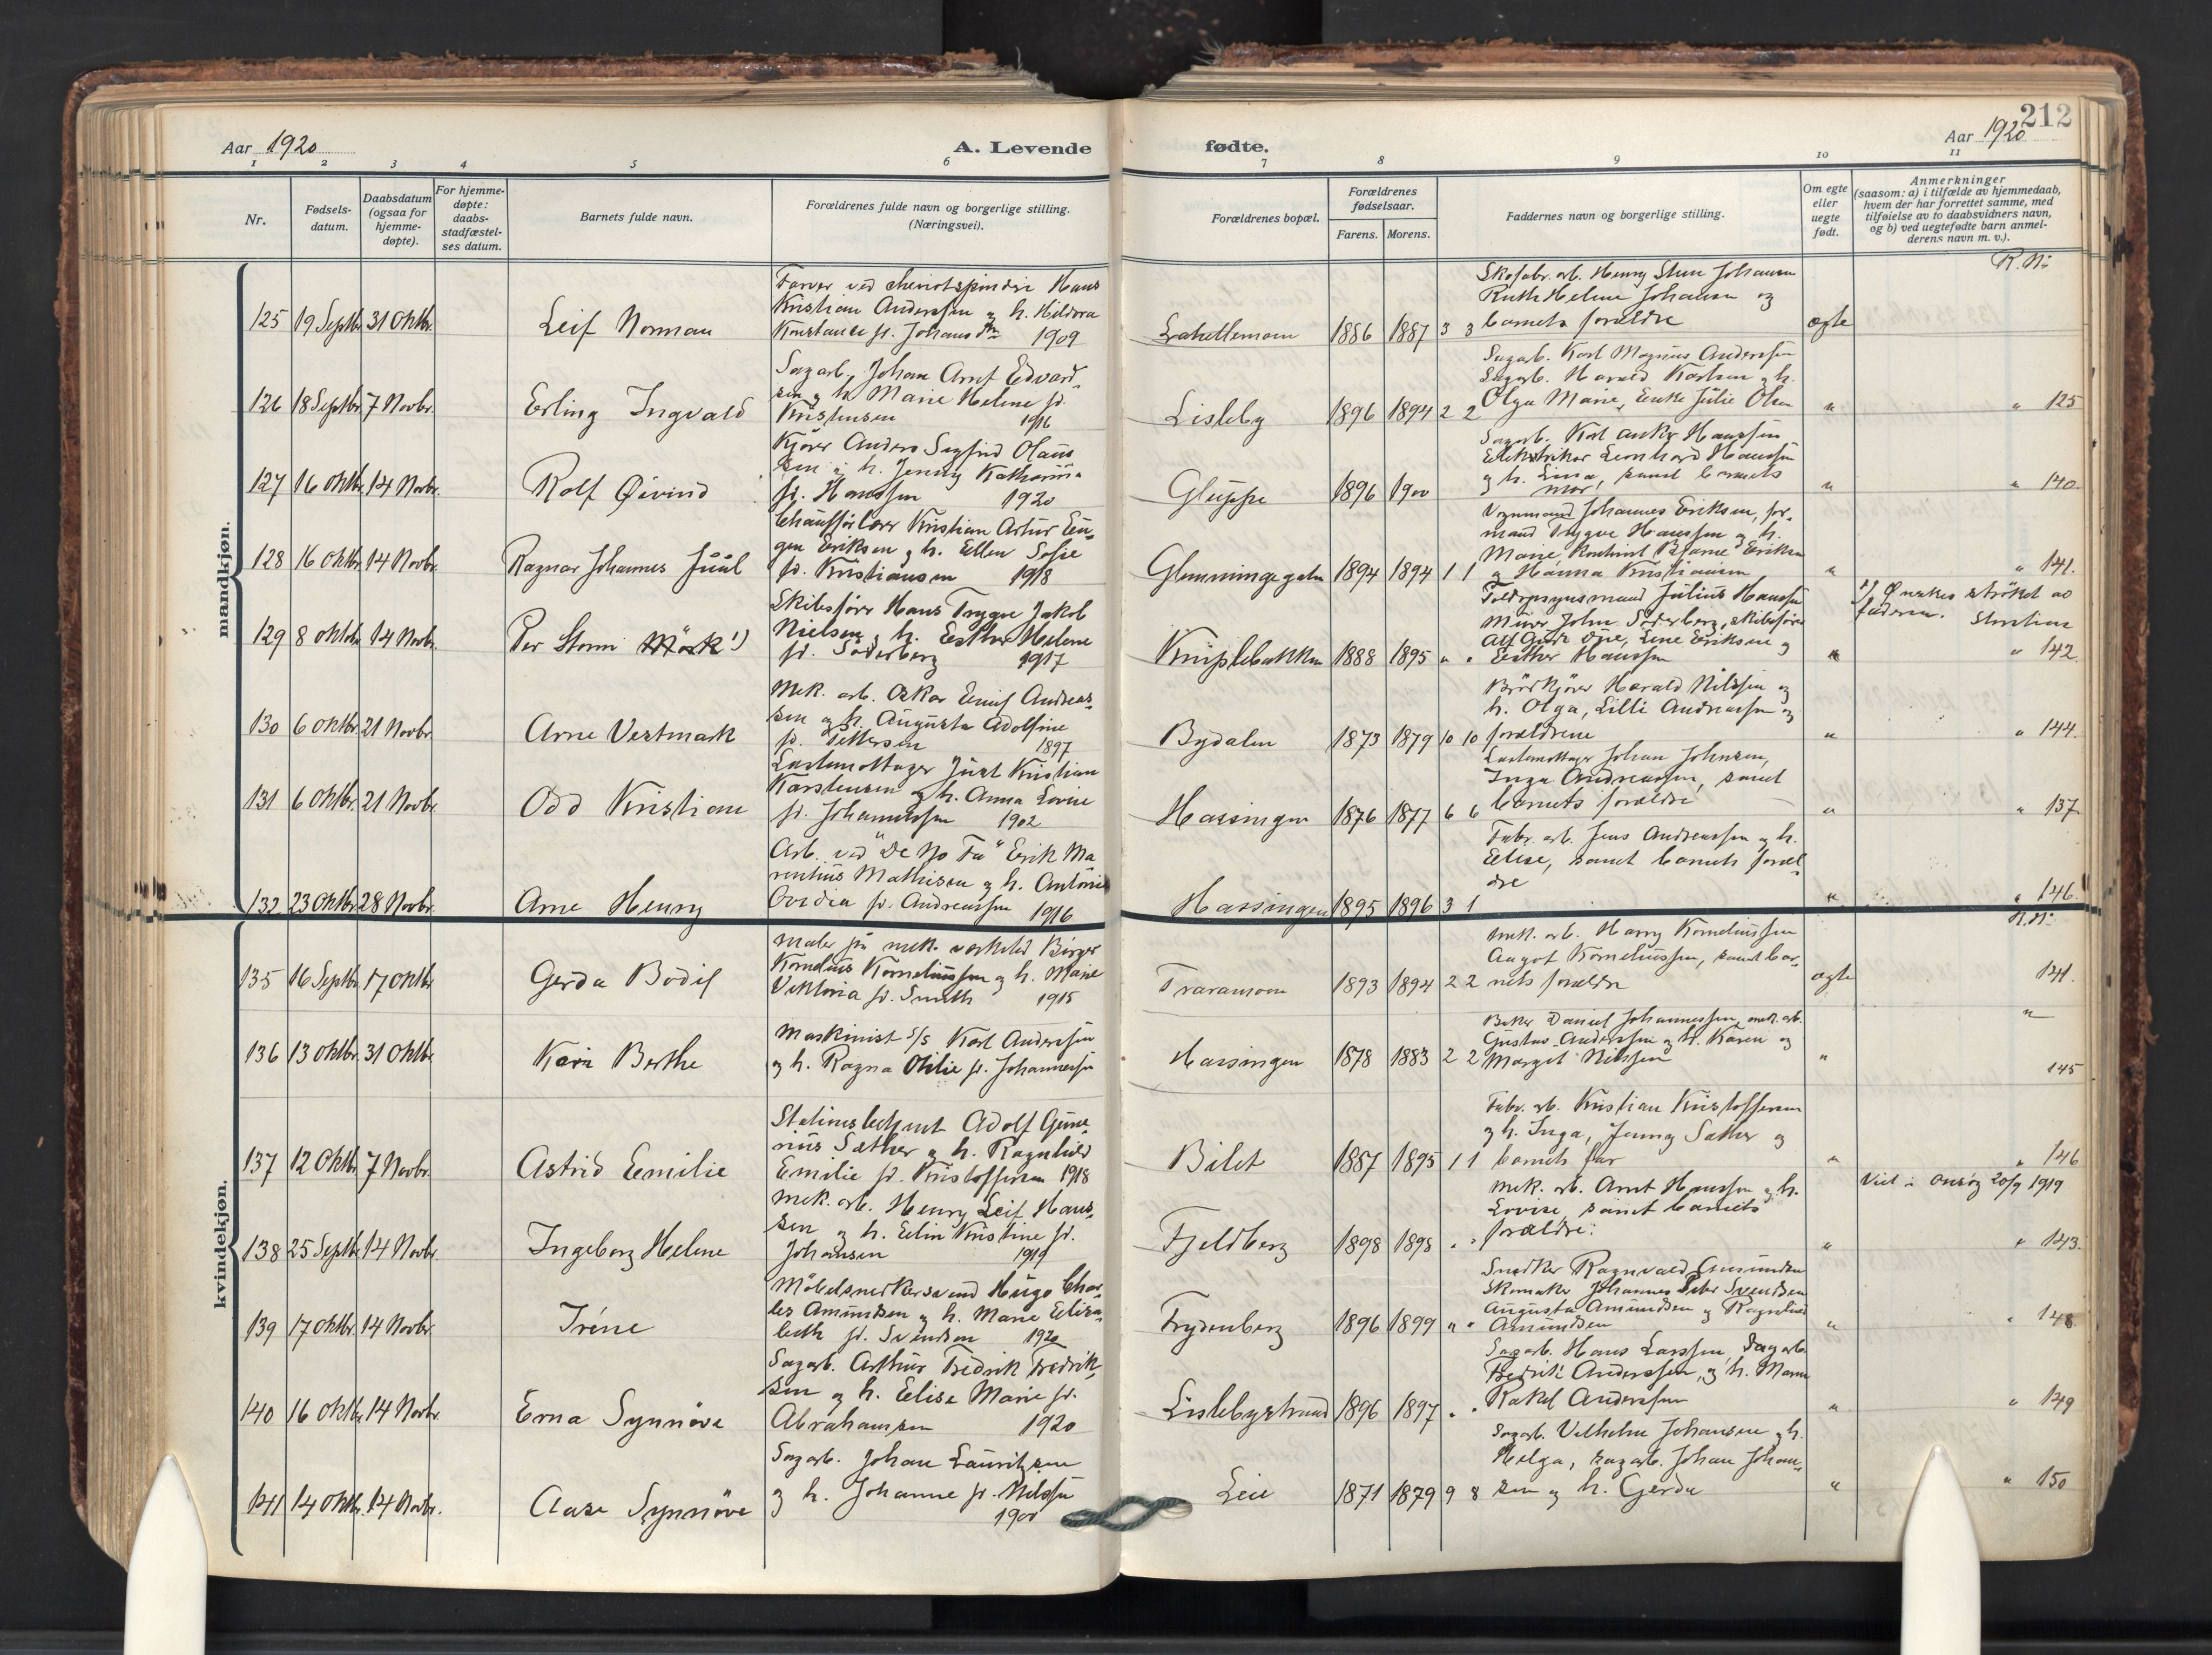 Aar 1920
A. Levende
1 2 3 4 5 6
Nr.
Fødselsdatum.
Daabsdatum (ogsaa for hjemmedøpte).
For hjemmedøpte: daabsstadfæstelses datum.
Barnets fulde navn.
Forældrenes fulde navn og borgerlige stilling. (Næringsvei).
212
Aar 1920
fødte.
7 8 9 10 11
Forældrenes bopæl.
Forældrenes fødselsaar.
Farens. Morens.
Faddernes navn og borgerlige stilling.
Om egte eller uegte født.
Anmerkninger
(saasom: a) i tilfælde av hjemmedaab,
hvem der har forrettet samme, med
tilføielse av to daabsvidners navn,
og b) ved uegtefødte barn anmelderens navn m. v.).
mandkjøn.
125 19 Septbr. 31 Oktbr. Leif Norman
Farver ved cheviotspinderi Hans
Kristian Anderssen og h. Hildora
Konstance f. Johansdtr 1909
1886 1887 3 3
Skofabr. arb. Henry Johansen
Ruth Helene Johansen og
barnets forældre
ægte
R. Nr.
126 18 Septbr. 7 Novbr. Erling Ingvald
Sagarb. Johan Arnt Edvard-
sen og h. Marie Helene f.
Kristensen 1916
Lisleby 1896 1894 2 2
Sagarb. Karl Magnus Anderssen
Sagarb. Harald Karlsen og h.
Olga Marie, Enke Julie Olsen
" " 125
127 16 Oktbr. 14 Novbr. Rolf Øivind
Kjører Anders Sigfrid Olaus-
sen og h. Jenny Katharina
f. Hanssen 1920
Gluppe 1896 1900
Sagarb. Karl Anker Hanssen
Elektriker Leonhard Hanssen
og h. Lina, samt barnets
mor,
" " 140.
128 16 Oktbr. 14 Novbr. Ragnar Johannes Juul
Chaufførlærer Kristian Artur Eu-
gen Eriksen og h. Ellen Sofie
f. Kristiansen 1918
Glemmingegaten 1894 1894 1 1
Vognmand Johannes Eriksen, for-
mand Trygve Hanssen og h.
Marie Bjarne Eriksen
og Hanna Kristiansen
" " 141.
129 8 Oktbr. 14 Novbr. Per Storm Mørk 1)
Skibsfører Hans Trygve Jakob
Nielsen og h. Esther Helene
f. Søderberg 1917
Kniplebakken 1888 1895 " "
Toldopsynsmand Julius Hanssen
Murer John Søderberg, skibsfører
Alf Lene Eriksen og
Esther Hanssen
"
1) Ønskes strøket av
faderen.
" 142.
130 6 Oktbr. 21 Novbr. Arne Vestmark
Mek. arb. Oskar Emil Andreas-
sen og h. Augusta Adolfine
f. Pettersen 1897
Bydalen 1873 1879 10 10
Brødkjører Harald Nilssen og
h. Olga, Lilli Andreassen og
forældrene
" " 144.
131 6 Oktbr. 21 Novbr. Odd Kristian
Lastemottager Just Kristian
Karstensen og h. Anna Lovise
f. Johannessen 1902
Hassingen 1876 1877 6 6
Lastemottager Johan Johnsen,
Inga Andreassen, samt
barnets forældre
" " 137
132 23 Oktbr. 28 Novbr. Arne Henry
Arb. ved "De No Fa" Erik Ma
rentius Mathisen og h. Antonie
Ovidia f. Andreassen 1916
Hassingen 1895 1896 3 1
Fabr. arb. Jens Andreassen og h.
Elise, samt barnets foræl-
dre
" " 146.
kvindekjøn.
135 16 Septbr. 17 Oktbr. Gerda Bodil
Maler på mek. verksted Birger
Kornelius Korneliussen og h. Marie
Viktoria f. Smith 1915
Traramoen 1893 1894 2 2
Mek. arb. Harry Korneliussen
Aagot Korneliussen, samt bar-
nets forældre
ægte
R. Nr.
141.
136 13 Oktbr. 31 Oktbr. Kari Berthe
Maskinist S/S Karl Anderssen
og h. Ragna Othilie f. Johannessen
Hassingen 1878 1883 2 2
Baker Daniel Johannessen, mek. arb.
Gustav Anderssen og h. Karen og
Margit Nilssen
" "
145
137 12 Oktbr. 7 Novbr. Astrid Emilie
Stationsbetjent Adolf Gune-
rius Sæther og h. Ragnhild
Emilie f. Kristoffersen 1918
Bilet 1887 1895 1 1
Fabr. arb. Kristian Kristoffersen
og h. Inga, Jenny Sæther og
barnets far
" " 146
138 25 Septbr. 14 Novbr. Ingeborg Helene
Mek. arb. Henry Leif Hans-
sen og h. Elin Kristine f.
Johansen 1919
Fjeldberg 1898 1898 " "
Mek. arb. Arnt Hanssen og h.
Lovise, samt barnets
forældre.
"
Viet i Onsøy 20/9 1919
" 143.
139 17 Oktbr. 14 Novbr. Iréne
Møbelsnedkersvend Hugo Char-
les Amundsen og h. Marie Elisa-
beth f. Svendsen 1920
Frydenberg 1896 1899 " "
Snedker Ragnvald Amundsen
Skomaker Johannes Peter Svendsen
Augusta Amundsen og Ragnhild
Amundsen
" " 148
140 16 Oktbr. 14 Novbr. Erna Synnøve
Sagarb. Arthur Fredrik Fredrik-
sen og h. Elise Marie f.
Abrahamsen 1920
Lislebystrand 1896 1897 " "
Sagarb. Hans Larssen, Sagarb.
Fredrik Anderssen, og h. Marie
Rakel Anderssen
" " 149
141 14 Oktbr. 14 Novbr. Aase Synnøve
Sagarb. Johan Lauritzsen
og h. Johanne f. Nilssen
1900
Leie 1871 1879 9 8
Sagarb. Vilhelm Johansen og h.
Helga, sagarb. Johan Johan-
sen og h. Gerda
" " 150